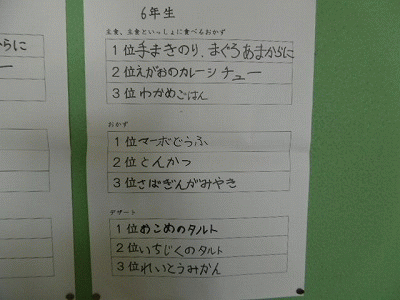 6年生
主食、主食といっしょに食べるおかず
1位手まきのり、まぐろあまからに
2位えがおのカレーシチュー
3位わかめごはん
おかず
1位マーボどうふ
2位とんかつ
3位さばぎんがみやき
デザート
1位おこめのタルト
2位いちじくのタルト
3位れいとうみかん
らに
ー